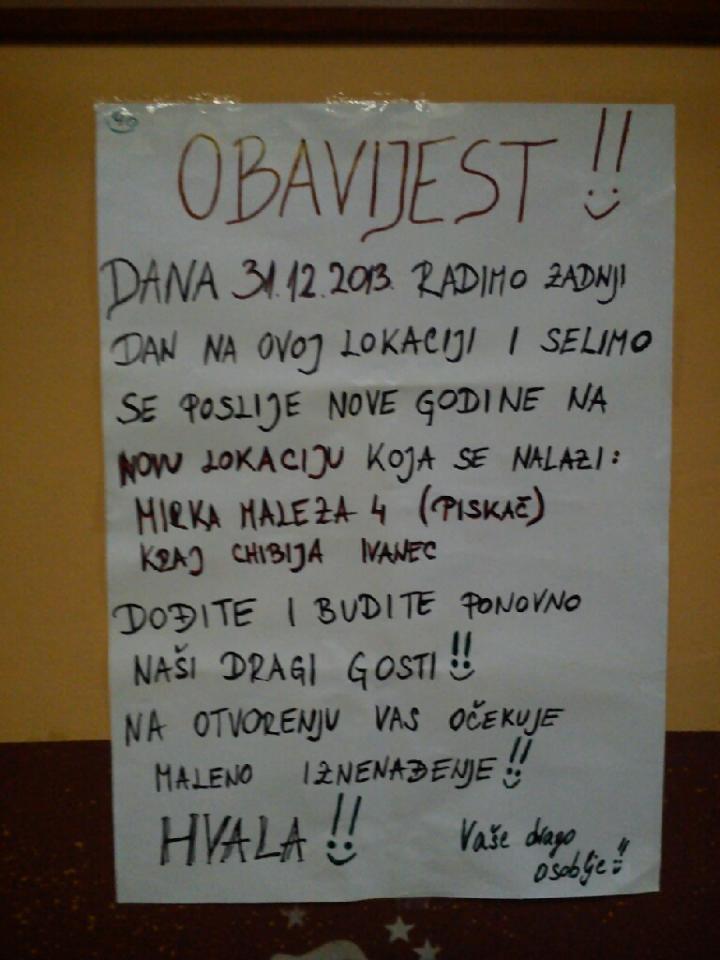 OBAVIJEST !!
DANA 31.12.2013. RADIMO ZADNJI
DAN NA OVOJ LOKACIJI I SELIMO
SE POSLIJE NOVE GODINE NA
NOVU LOKACIJU KOJA SE NALAZI:
MIRKA MALEZA 4 (PISKAČ)
KRAJ CHIBIJA IVANEC
DOĐITE I BUDITE PONOVNO
NAŠI DRAGI GOSTI !!
NA OTVORENJU VAS OČEKUJE
MALENO IZNENAĐENJE !!
HVALA !!
Vaše drago
osoblje !!